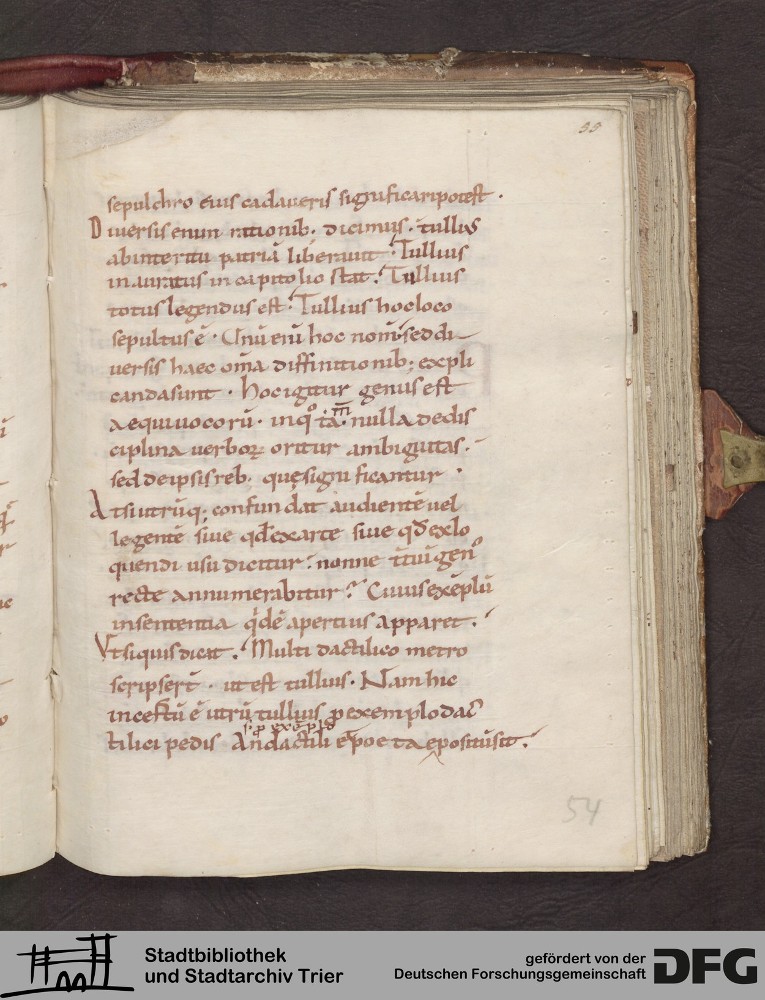 55
sepulchro eius cadaueris significari potest .
Diuersis enim rationib; dicimus . tullius
ab interitu patriā liberauit . Tullius
inauratus in capitolio stat . Tullius
totus legendus est . Tullius hoc loco
sepultus ē . Vnū eni͞ hoc nom̄ . sed di
uersis haec om̄a diffinitionib; expli
canda sunt . hoc igitur genus est
aequiuocorū . in q° tām̄ nulla de dis
ciplina uerboꝝ oritur ambiguitas .
sed de ipsis reb; quę significantur .
At si utrūq; confundat audientē uel
legentē siue qđ ex arte siue qđ ex lo
quendi usu dicitur ? nonne
recte annumerabitur ? Cuius exēplū
in sententia apertius apparet .
Vt siquis dicat . Multi dactilico metro
scripsert̄ . ut est tullius . Nam hic
incertū ē utrū tullius ꝓ exemplo dac
tilici pedis An dactili poeta positus sit .
54
Stadtbibliothek
und Stadtarchiv Trier
gefördert von der
Deutschen Forschungsgemeinschaft
DFG